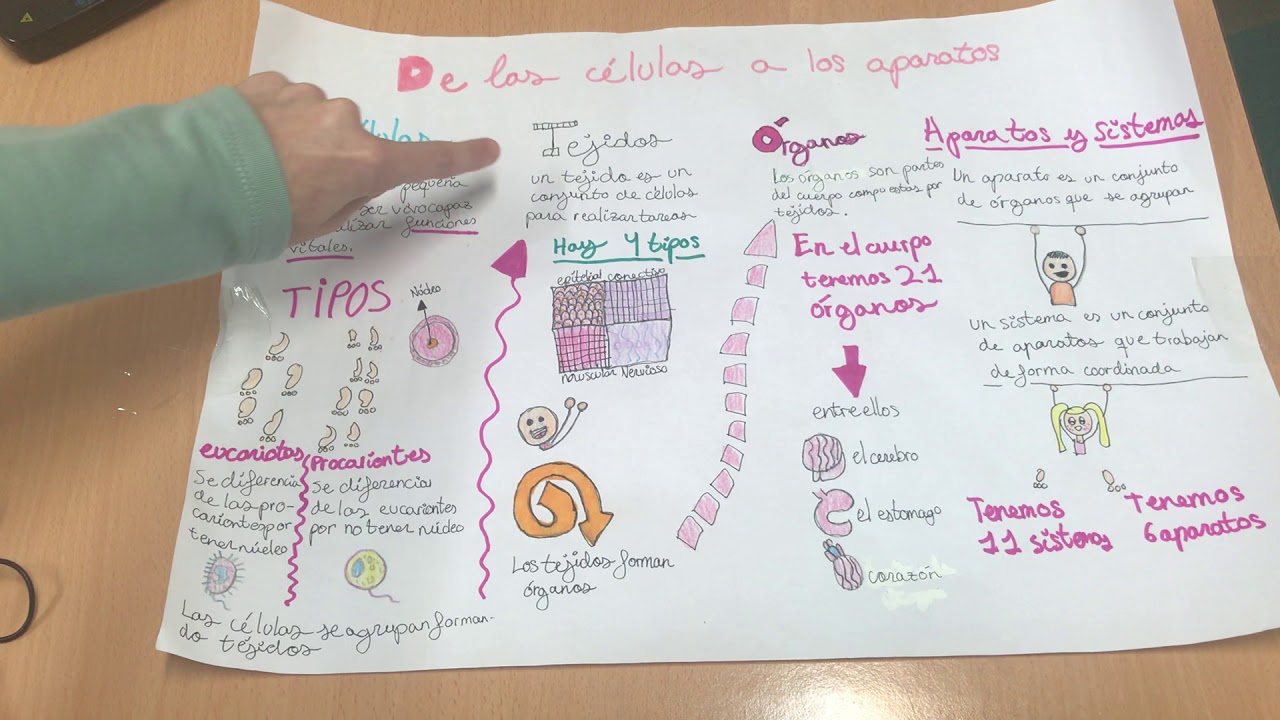 De las células a los aparatos
pequeña
ser vivo capaz
funciones
vitales.
TIPOS
Núcleo
eucariotas
Se diferencia
de las pro-
cariontes por
tener núcleo
Procariontes
Se diferencia
de las eucariontes
por no tener núcleo
Las células se agrupan forman-
do tejidos
Tejidos
un tejido es un
conjunto de células
para realizar tareas
Hay 4 tipos
epitelial conectivo
muscular Nervioso
Los tejidos forman
órganos
Órganos
Los órganos son partes
del cuerpo compuestas por
tejidos.
En el cuerpo
tenemos 21
órganos
entre ellos
el cerebro
el estomago
corazón
Aparatos y sistemas
Un aparato es un conjunto
de órganos que se agrupan
un sistema es un conjunto
de aparatos que trabajan
de forma coordinada
Tenemos
11 sistemas
Tenemos
6 aparatos